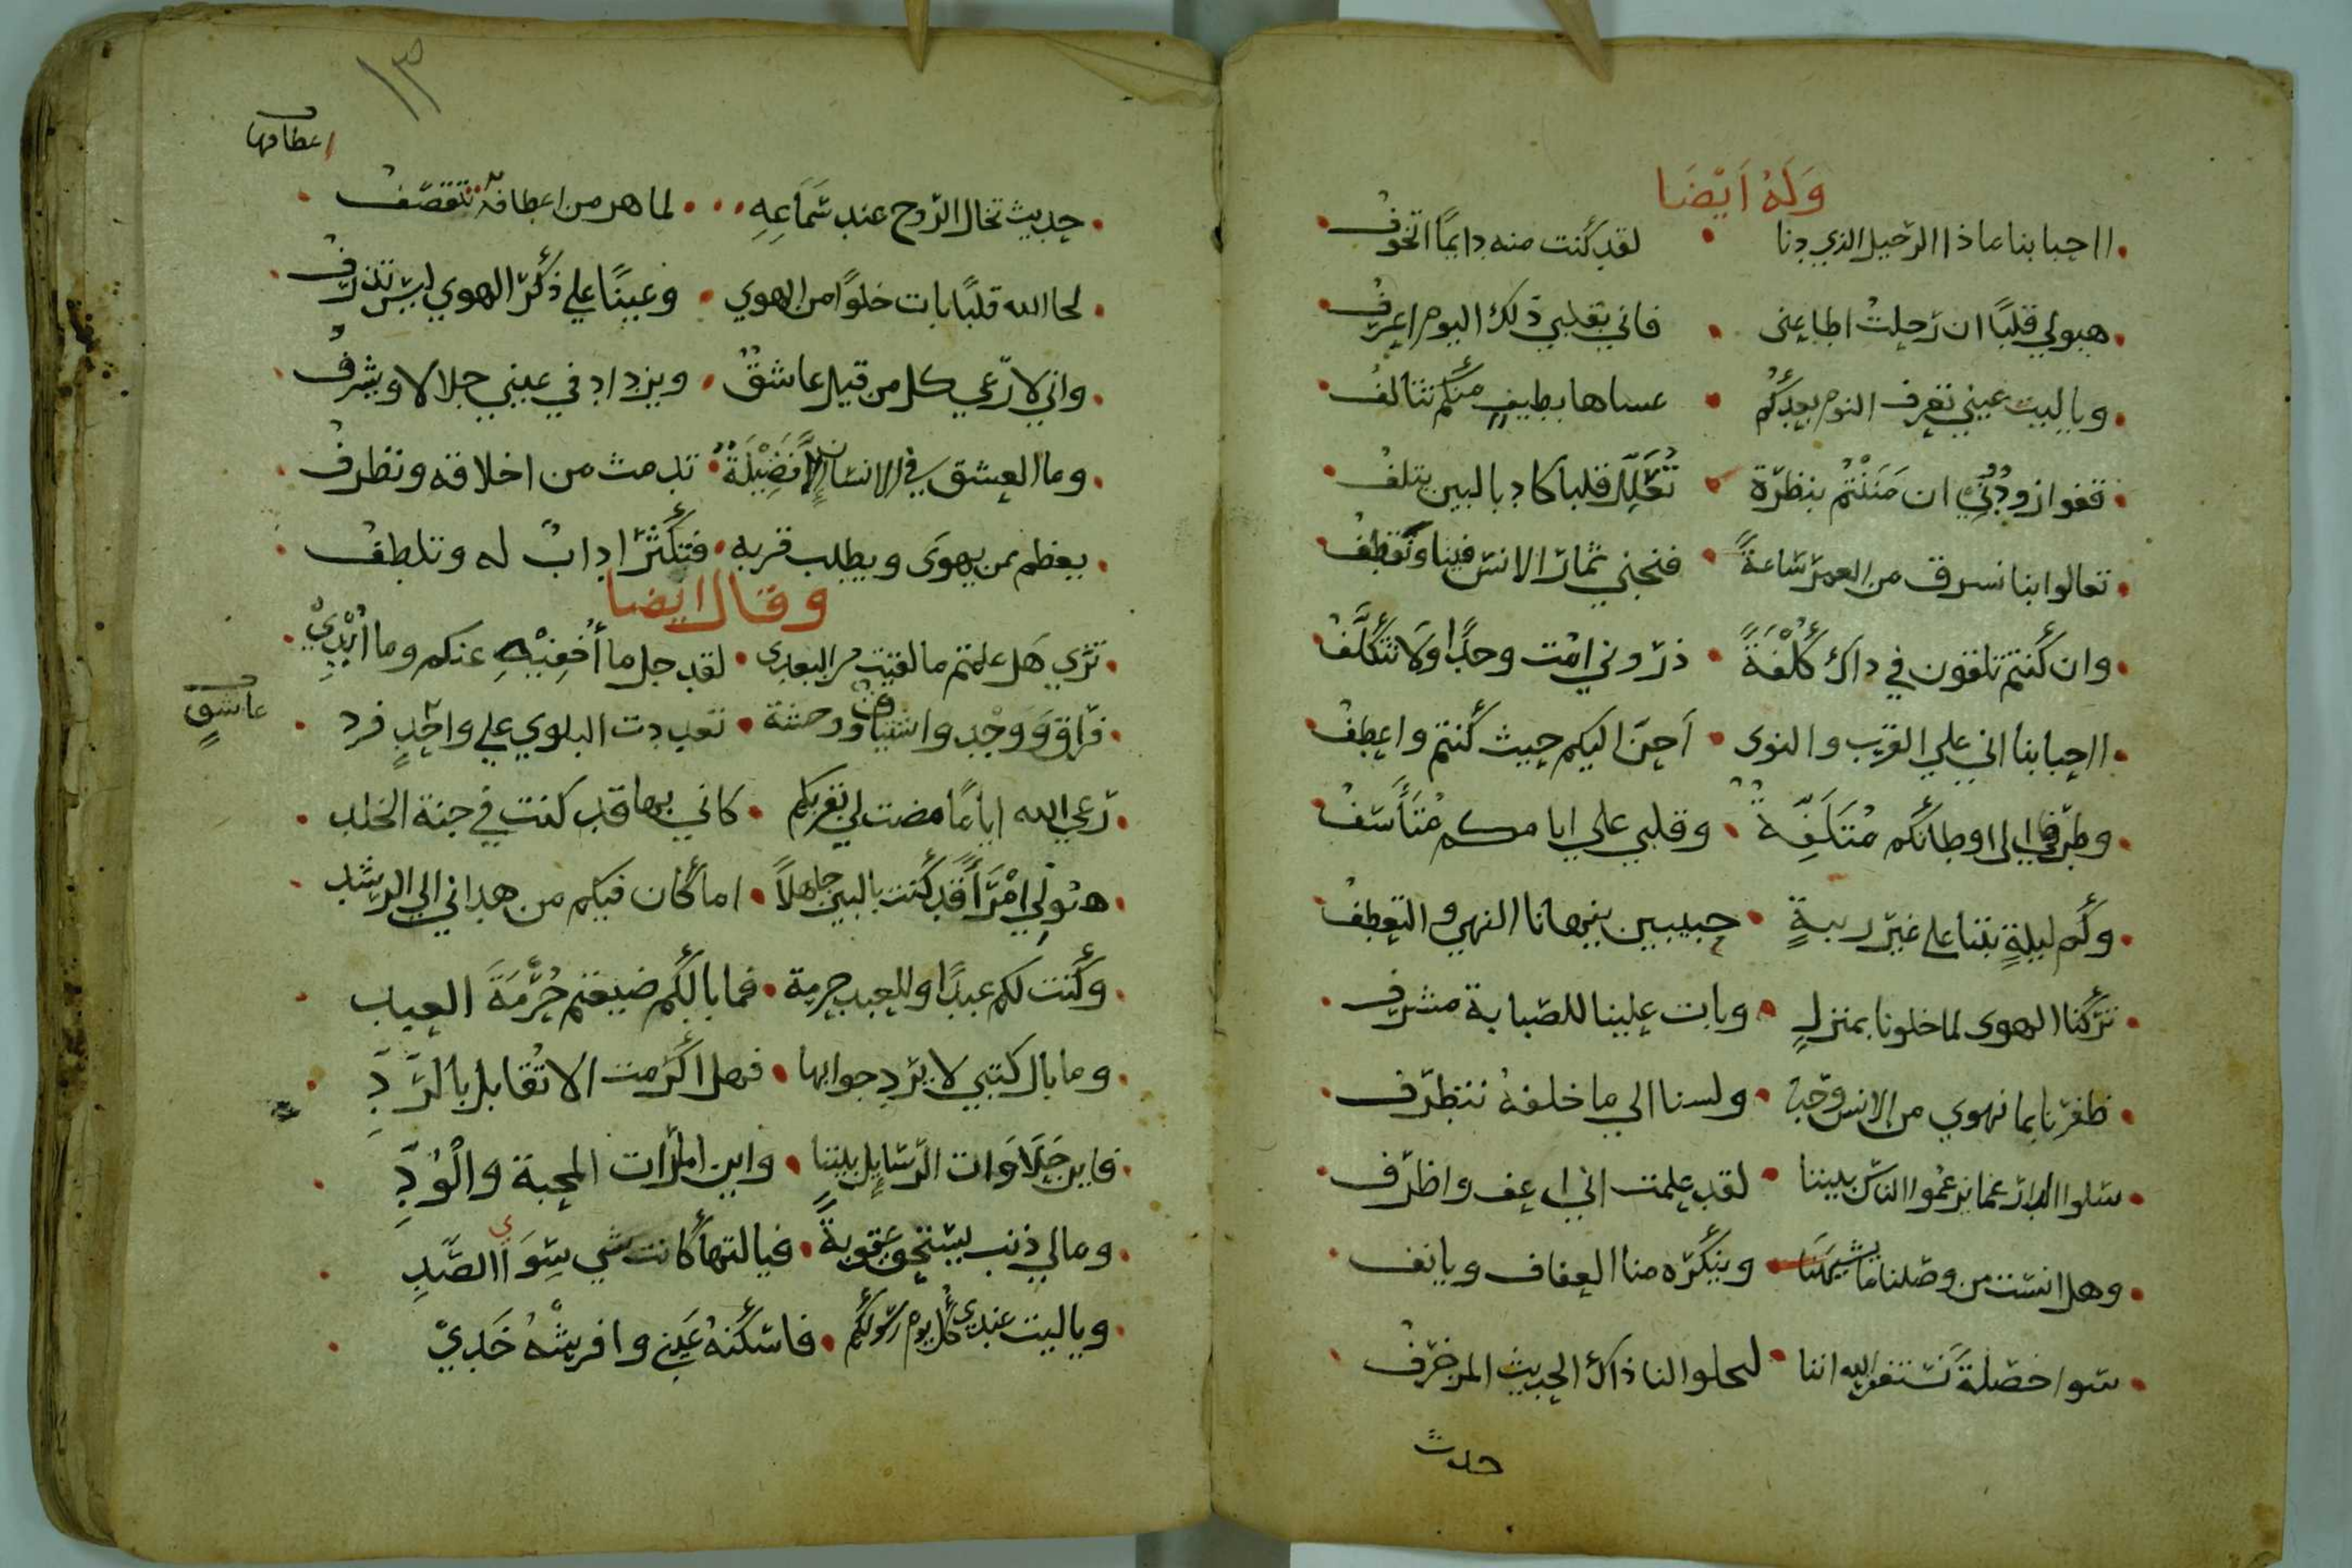 وَلَهُ اَيْضَا
ااحبابنا ماذا الرحيل الذي دنا لقد كنت منه دايمًا اتخوف
هبولي قلبًا ان رحلت اطاعني فاني بقلبي ذلك اليوم اعرف
وياليت عيني تعرف النوم بعدكم عساها بطيف منكم تتالف
قفوا زودوني ان مَنَنْتُم بنظرة تُعَلِّل قلبا كاد بالبين يتلف
تعالوا بنا نسرق من العمر ساعةً فنجني ثمار الانس فينا ونقطف
وان كنتم تلقون في داك كُلْفَةً ذروني امت وجدًا ولا تتكلَّف
ااحبابنا اني علي القرب والنوى اَحِنّ اليكم حيث كنتم واعطف
وطرفي الي اوطانكم مُتَلَفِّة وقلبي علي ايامكم مُتَأَسّف
وكم ليلةٍ بتنا على غير ريبةٍ حبيبين ينهانا النهي والتعطف
تركنا الهوى لما خلونا بمنزلٍ وبات علينا للصبابة مشرف
ظفرنا بما نهوي من الانس وحده ولسنا الي ما خلفه نتطرف
سلوا الدار عما يزعموا الناس بيننا لقد علمت اني اعف واظرف
وهل انست من وصلنا ما يشيننا وينكره منا العفاف ويانف
سوا خصلةً نستغفر الله اننا ليحلوا لنا ذاك الحديث المزخرف
حديث
١٣
اعطافها
حديث تخال الروح عند سَمَاعِهِ لما هز من اعطافه تتقصف
لحا الله قلبًا بات خلوًا من الهوي وعينًا علي ذكر الهوي ليس تذرف
واني لارعي كل من قيل عاشق ويزداد في عيني جلالا ويشرف
وما العشق في الانسان الّا فَضِيْلَةٌ تدمث من اخلاقه وتظرف
يعظم من يهوَى ويطلب قربه فتكثر ادابٌ له وتلطف
وقال ايضا
تري هَل علمتم ما لقيت من البعدى لقد جل ما أُخفِيْهِ عنكم وما اُبْدِيْ
فراق وَوَجْد واشتياق ووحشة تعددت البلوي علي واحدٍ فرد
عاشقٍ
رعي الله ايامًا مضت لي بقربكم كاني بها قد كنت في جنة الخلد
هبوني امْرَأً قد كنت بالبين جاهلاً اما كان فيكم من هداني الي الرشد
وكنت لكم عبدًا وللعبد حرمة فما بالكم ضيعتم حُرْمَةَ العبد
وما بال كتبي لا يرد جوابها فهل اكرمت الا تُقابل بالرَّدِّ
فاين حَلَاوَات الرسايل بيننا واين امارات المحبة والْوُدِّ
ومالي ذنب يستحق عقوبةً فيالتها كانت بشي سِوَي الصَّدِّ
وياليت عندي كل يوم رسولكم فاسكنهُ عَيني وافرشهُ خَدِيْ